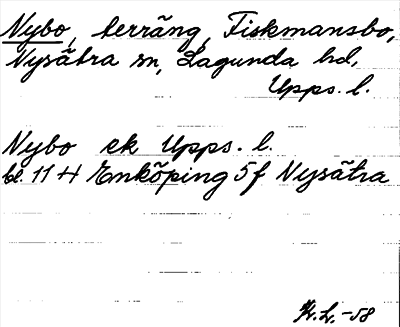 Nybo, terräng, Fiskmansbo,
Nysätra sn, Lagunda hd,
Upps. l.
Nybo ek Upps. l.
bl. 11 H Enköping 5 f Nysätra
Kr. L. -58